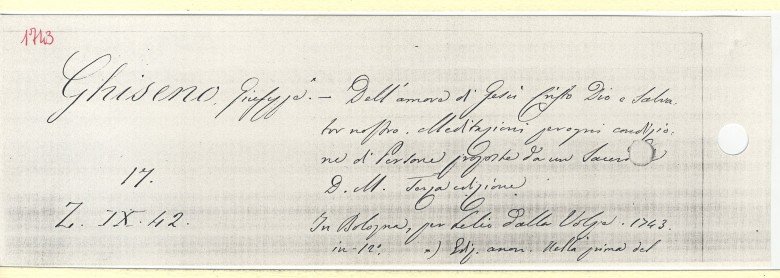 1743
Ghiseno, Giuseppe. — Dell'amore di Gesù Cristo Dio e Salva-
tor nostro. Meditazioni per ogni condizio-
ne di Persone proposte da un Sacerd
17. D. M. Terza edizione
Z. IX. 42. In Bologna, per Lelio dalla Volpe. 1743.
in-12° a) Ediz. anon. Nella prima del